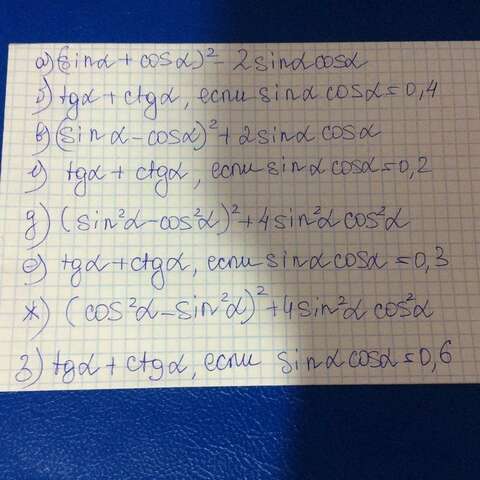 а) (sinα + cosα)² - 2sinα cosα
б) tgα + ctgα, если sinα cosα = 0,4
в) (sinα - cosα)² + 2sinα cosα
г) tgα + ctgα, если sinα cosα = 0,2
д) (sin²α - cos²α)² + 4sin²α cos²α
е) tgα + ctgα, если sinα cosα = 0,3
ж) (cos²α - sin²α)² + 4sin²α cos²α
з) tgα + ctgα, если sinα cosα = 0,6